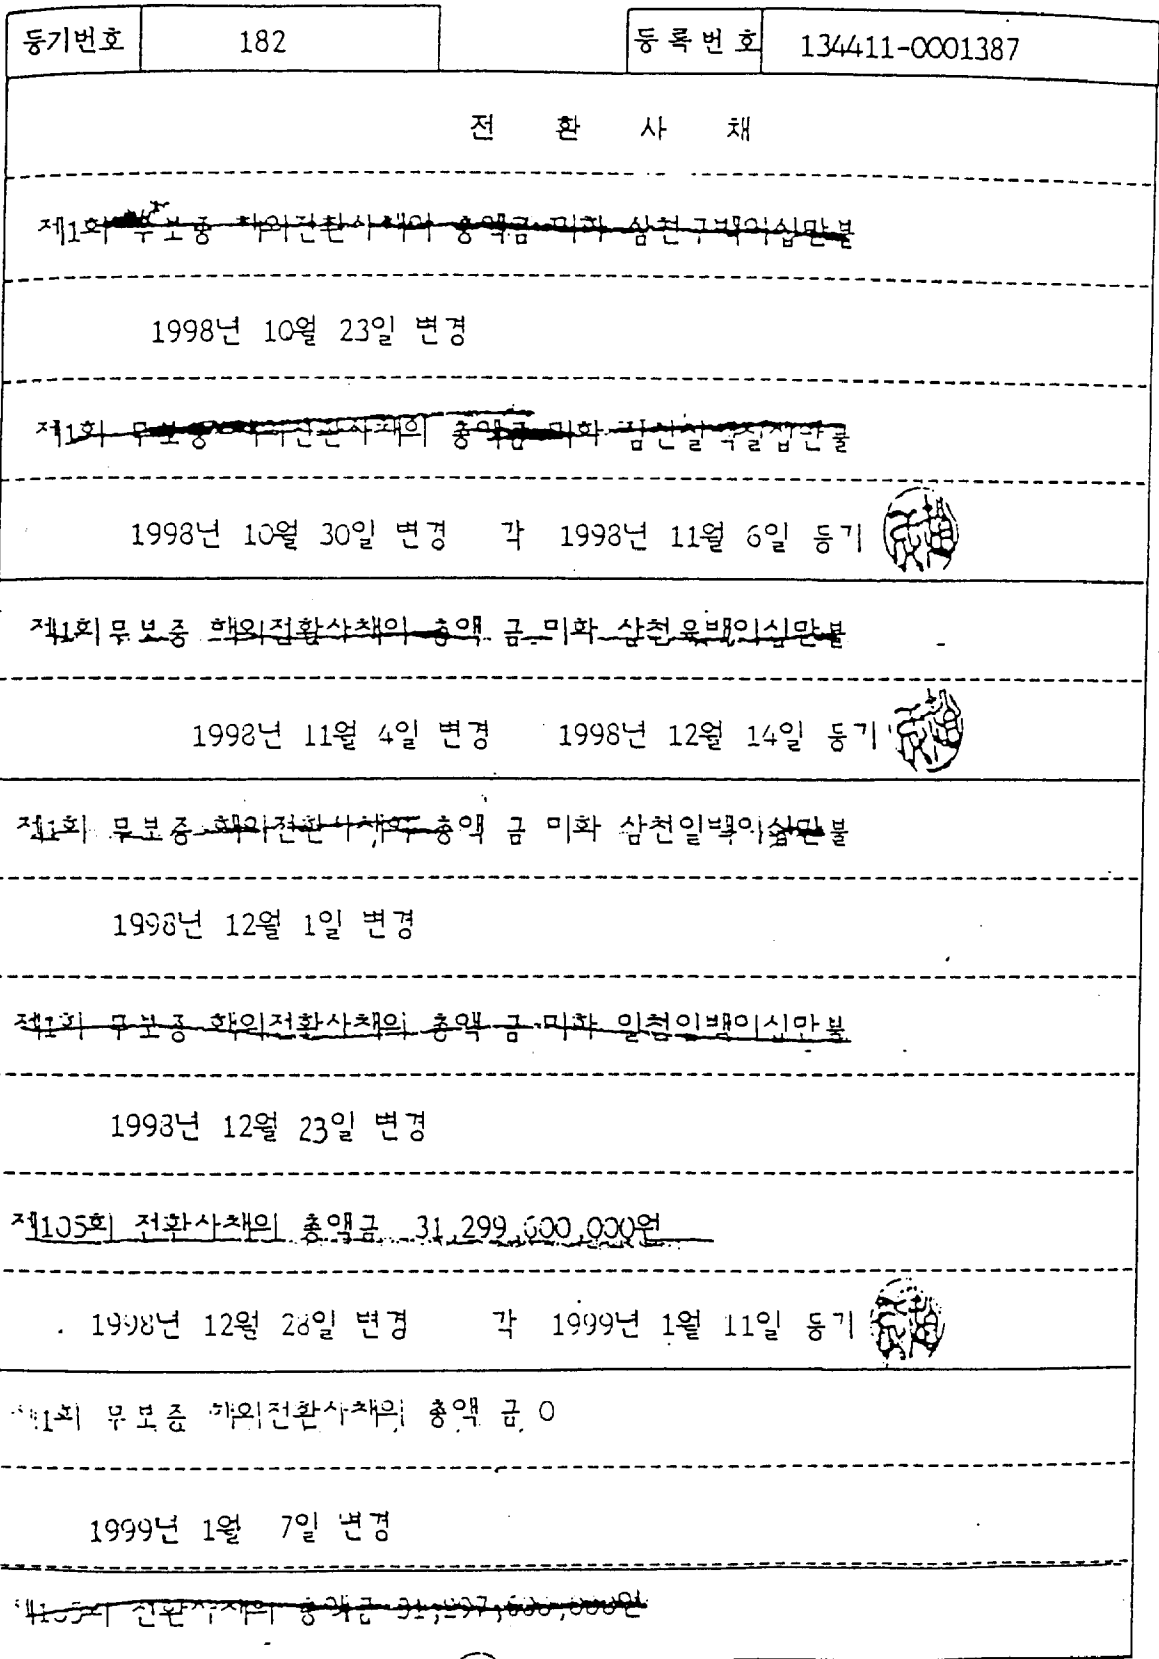 등기번호 182 등록번호 134411-0001387
전 환 사 채
제1회 무보증 해외전환사채의 총액금 미화 삼천구백이십만불
1998년 10월 23일 변경
제1회 무보증 총액금 미화
1998년 10월 30일 변경 각 1998년 11월 6일 등기
제1회 무보증 해외전환사채의 총액 금 미화 삼천육백이십만불
1998년 11월 4일 변경 1998년 12월 14일 등기
제1회 무보증 해외전환사채의 총액 금 미화 삼천일백이십만불
1998년 12월 1일 변경
제1회 무보증 해외전환사채의 총액 금 미화 일천일백이십만불
1998년 12월 23일 변경
제105회 전환사채의 총액금 31,299,600,000원
1998년 12월 28일 변경 각 1999년 1월 11일 등기
제1회 무보증 해외전환사채의 총액 금 0
1999년 1월 7일 변경
전환사채의 총액금